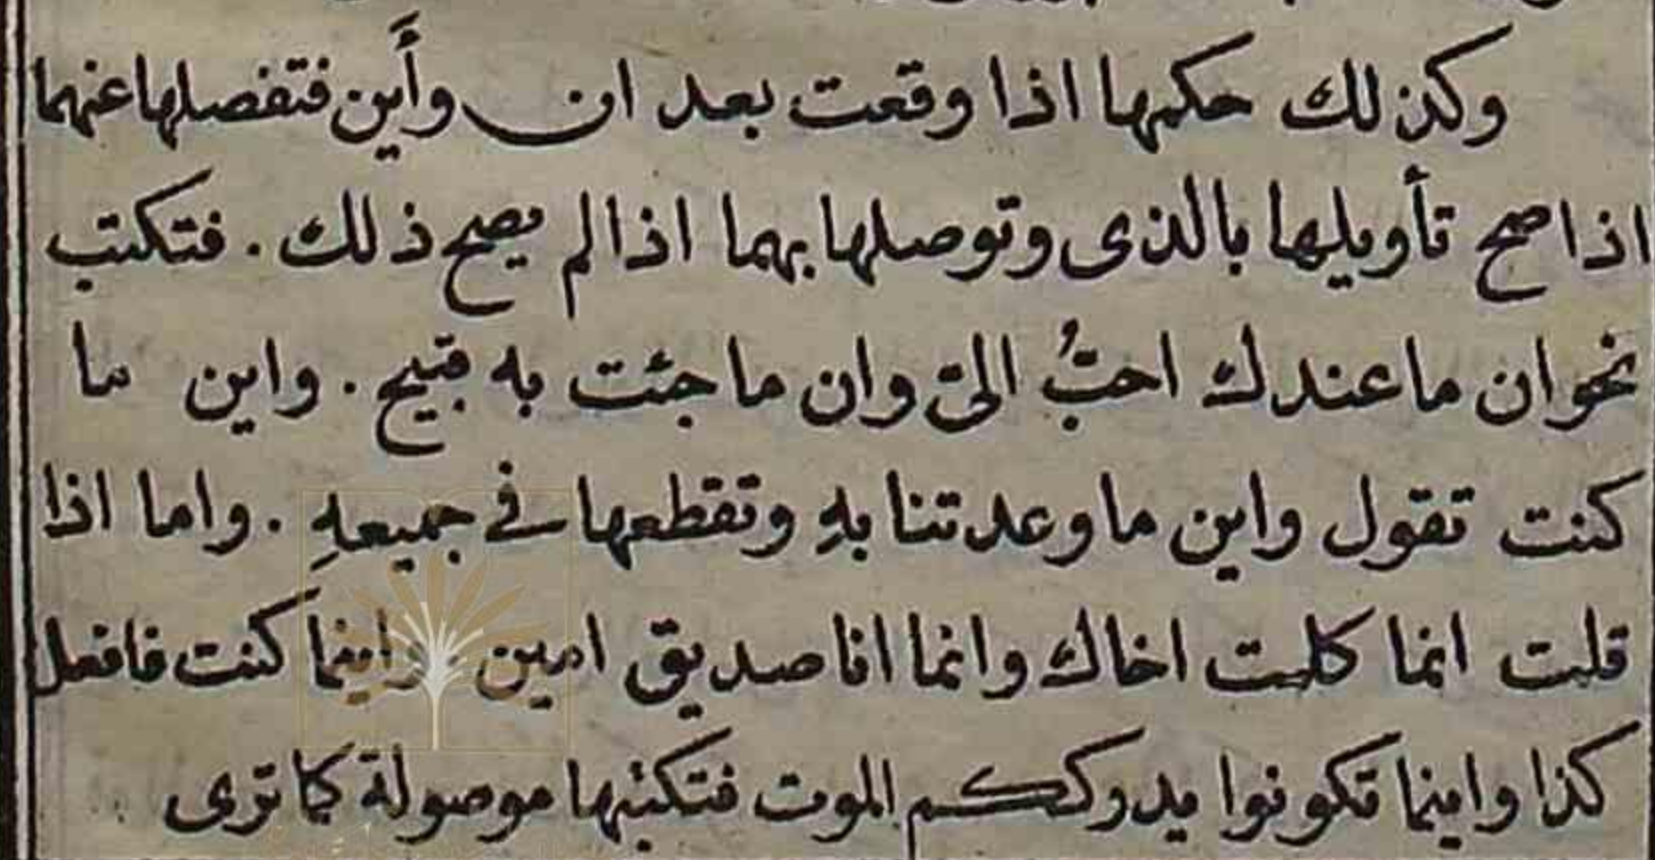 وكذلك حكمها اذا وقعت بعد ان وأين فتفصلها عنهما
اذا صح تأويلها بالذى وتوصلها بهما اذا لم يصح ذلك . فتكتب
نحو ان ما عندك احبُّ الىّ وان ما جئت به قبيح . واين ما
كنت تقول واين ما وعدتنا بهِ وتقطعها فى جميعهِ . واما اذا
قلت انما كلمت اخاك وانما انا صديق امين واينما كنت فافعل
كذا واينما تكونوا يدرككم الموت فتكتبها موصولة كما ترى